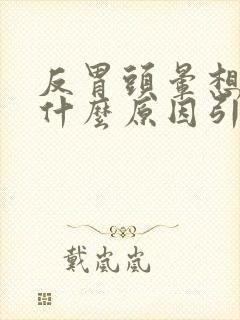 反胃頭暈想
什麼原因引
戴嵐嵐